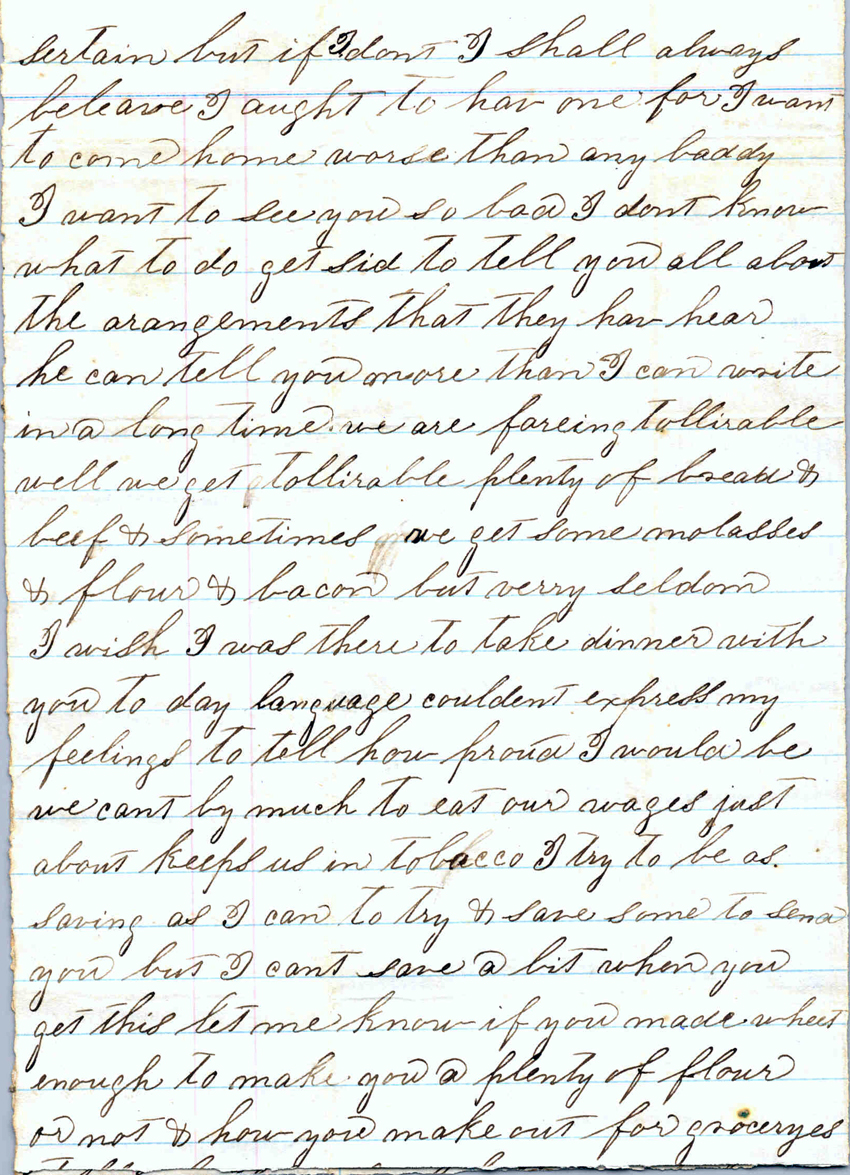 sertain but if I dont I shall always
beleave I aught to hav one for I want
to come home worse than any baddy
I want to see you so bad I dont know
what to do get sid to tell you all about
the arangements that they hav hear
he can tell you more than I can write
in a long time. we are fareing tollirable
well we get tollirable plenty of bread &
beef & sometimes we get some molasses
& flour & bacon but verry seldom
I wish I was there to take dinner with
you to day language couldent express my
feelings to tell how proud I would be
we cant by much to eat our wages just
about keeps us in tobacco I try to be as.
saving as I can to try & save some to send
you but I cant save a bit when you
get this let me know if you made wheet
enough to make you a plenty of flour
or not & how you make out for groceryes